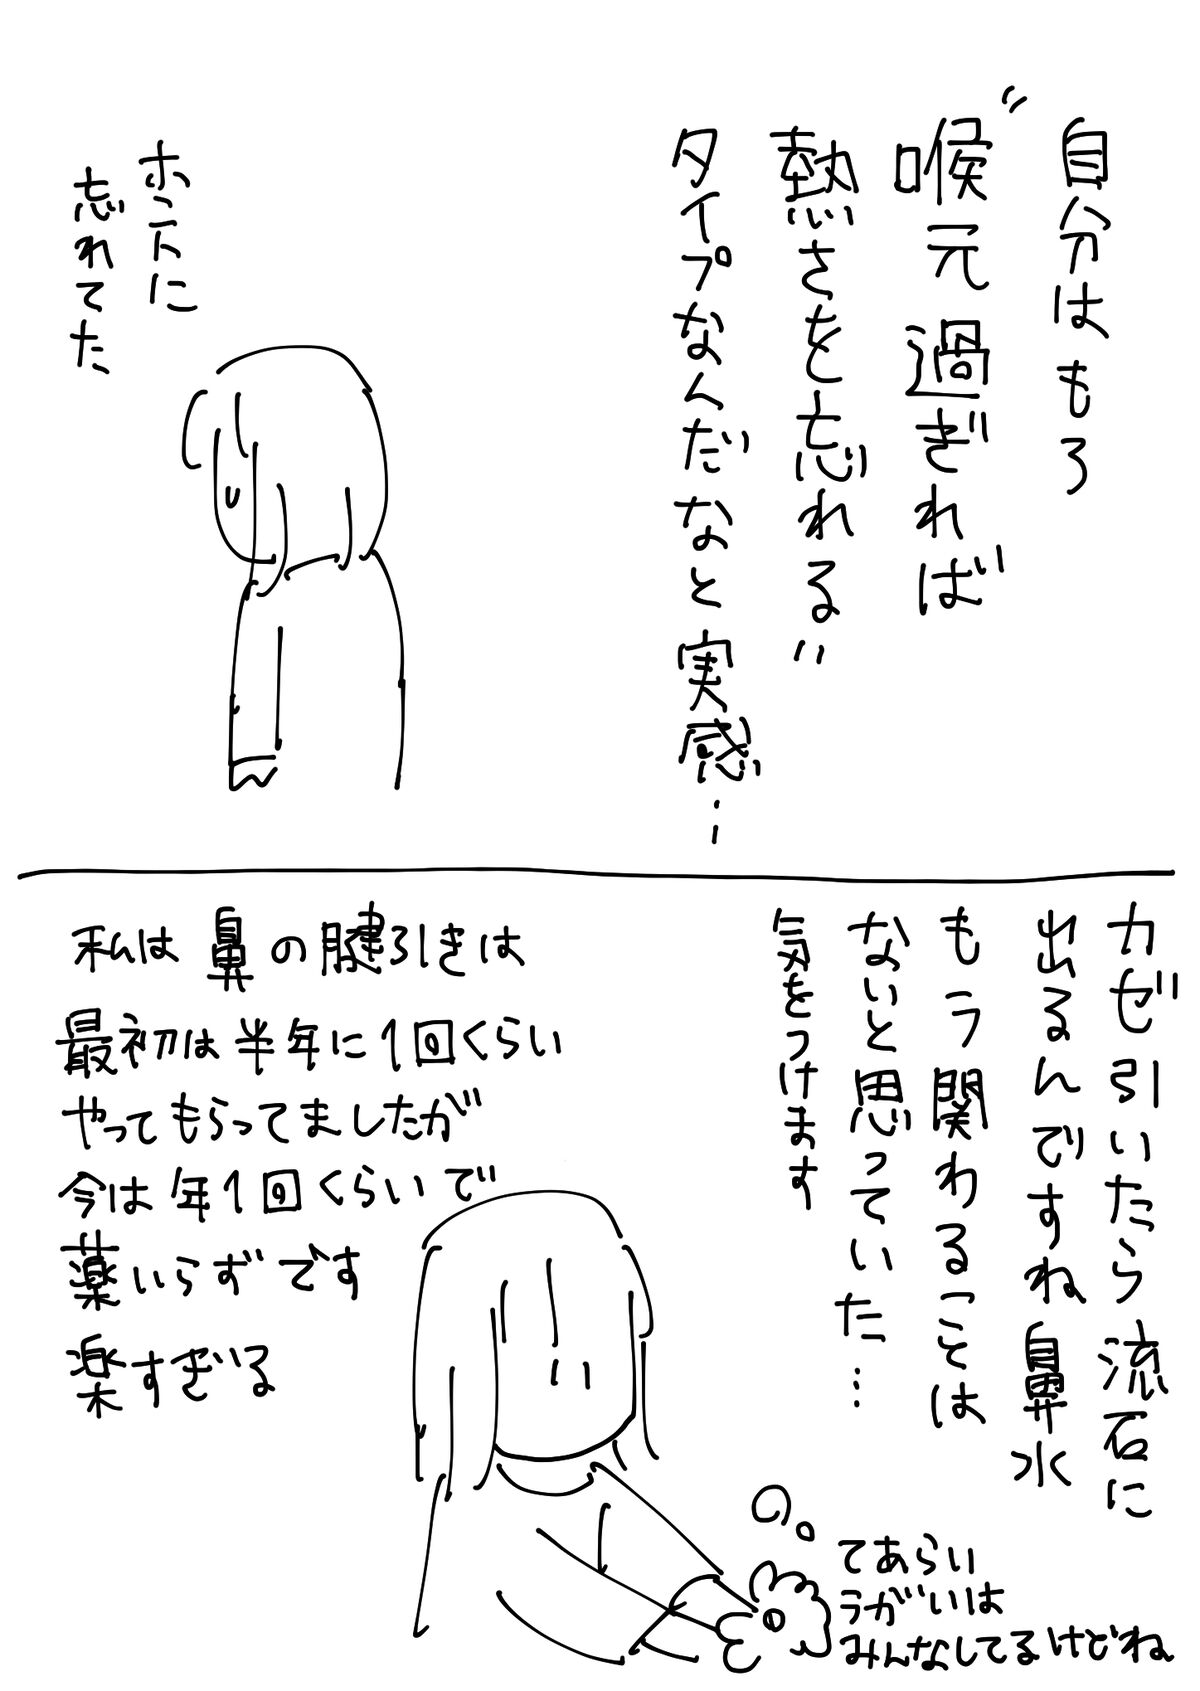 自分はもろ
“喉元過ぎれば
熱さを忘れる”
タイプなんだなと実感…
ホントに
忘れてた
カゼ引いたら流石に
出るんですね鼻水
もう関わることは
ないと思っていた…
気をつけます
私は鼻の腱引きは
最初は半年に1回くらい
やってもらってましたが
今は年1回くらいで
薬いらずです
楽すぎる
てあらい
うがいは
みんなしてるけどね